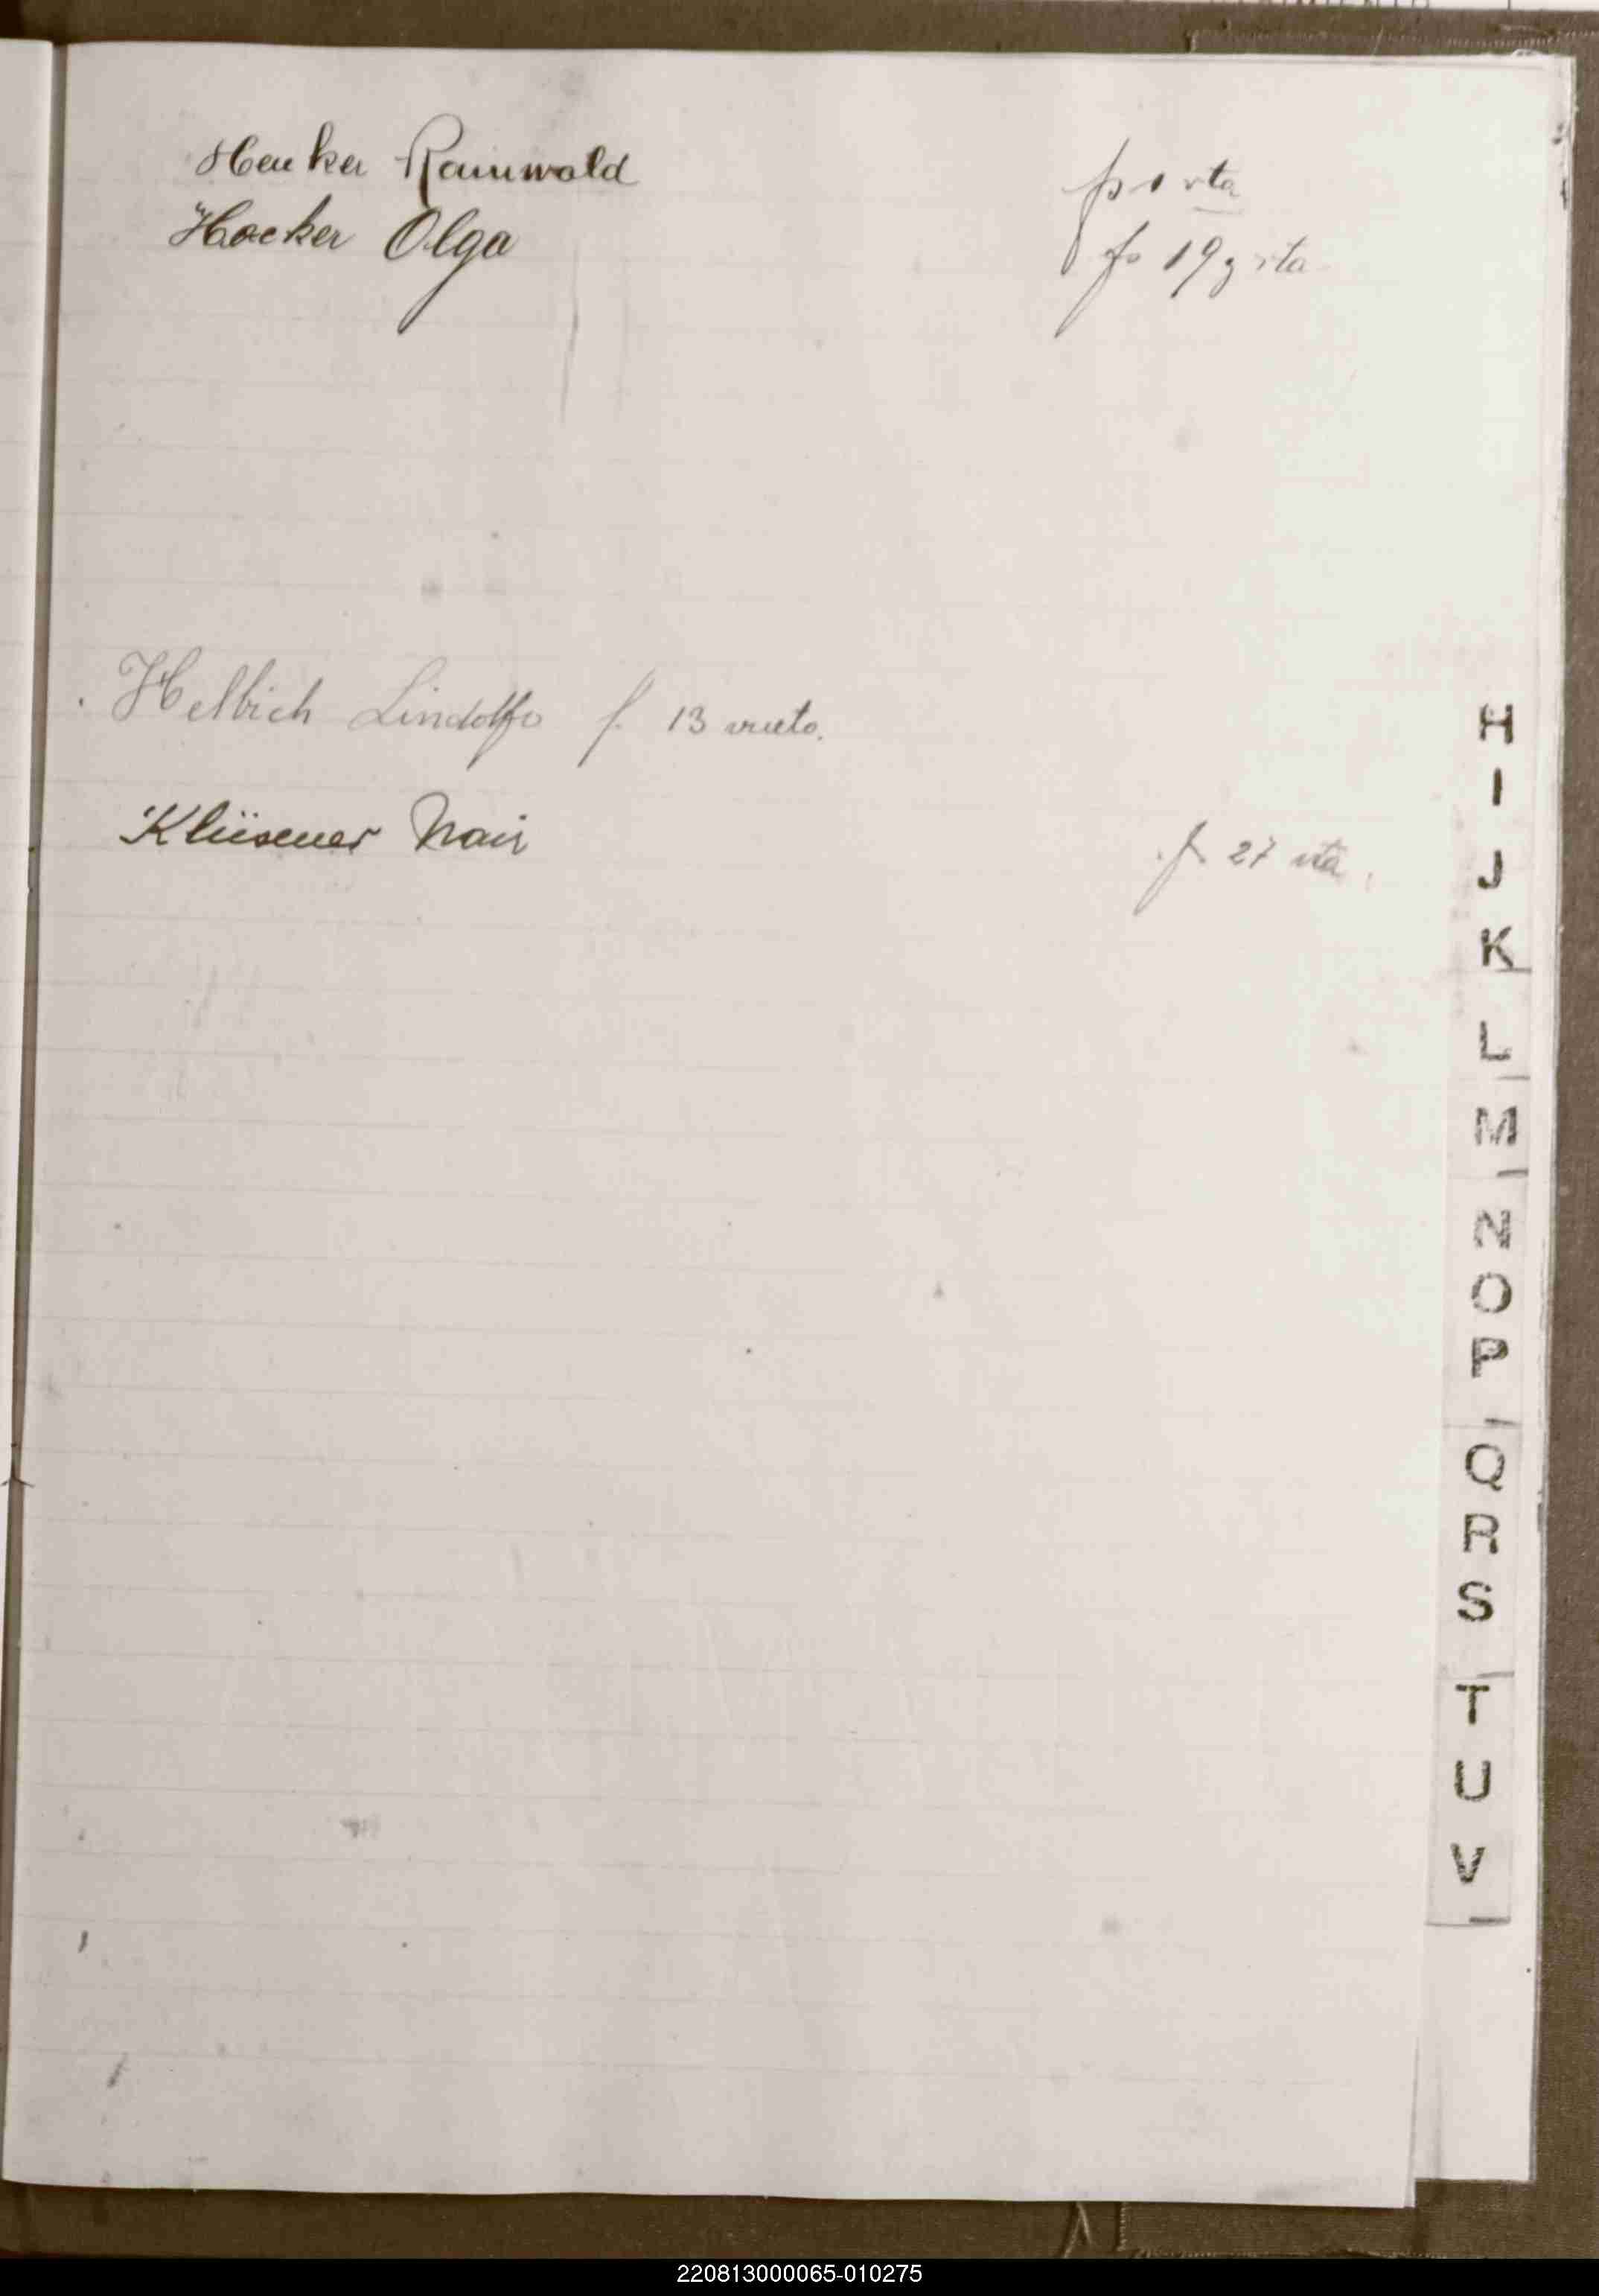 Henker Raunwald
fs 1 vta
Hoecker Olga
fs 19 y vta
Helbich Lindolfo f. 13 vuelto.
Klüsener Nair
f. 27 vta.
H
I
J
K
L
M
N
O
P
Q
R
S
T
U
V
220813000065-010275